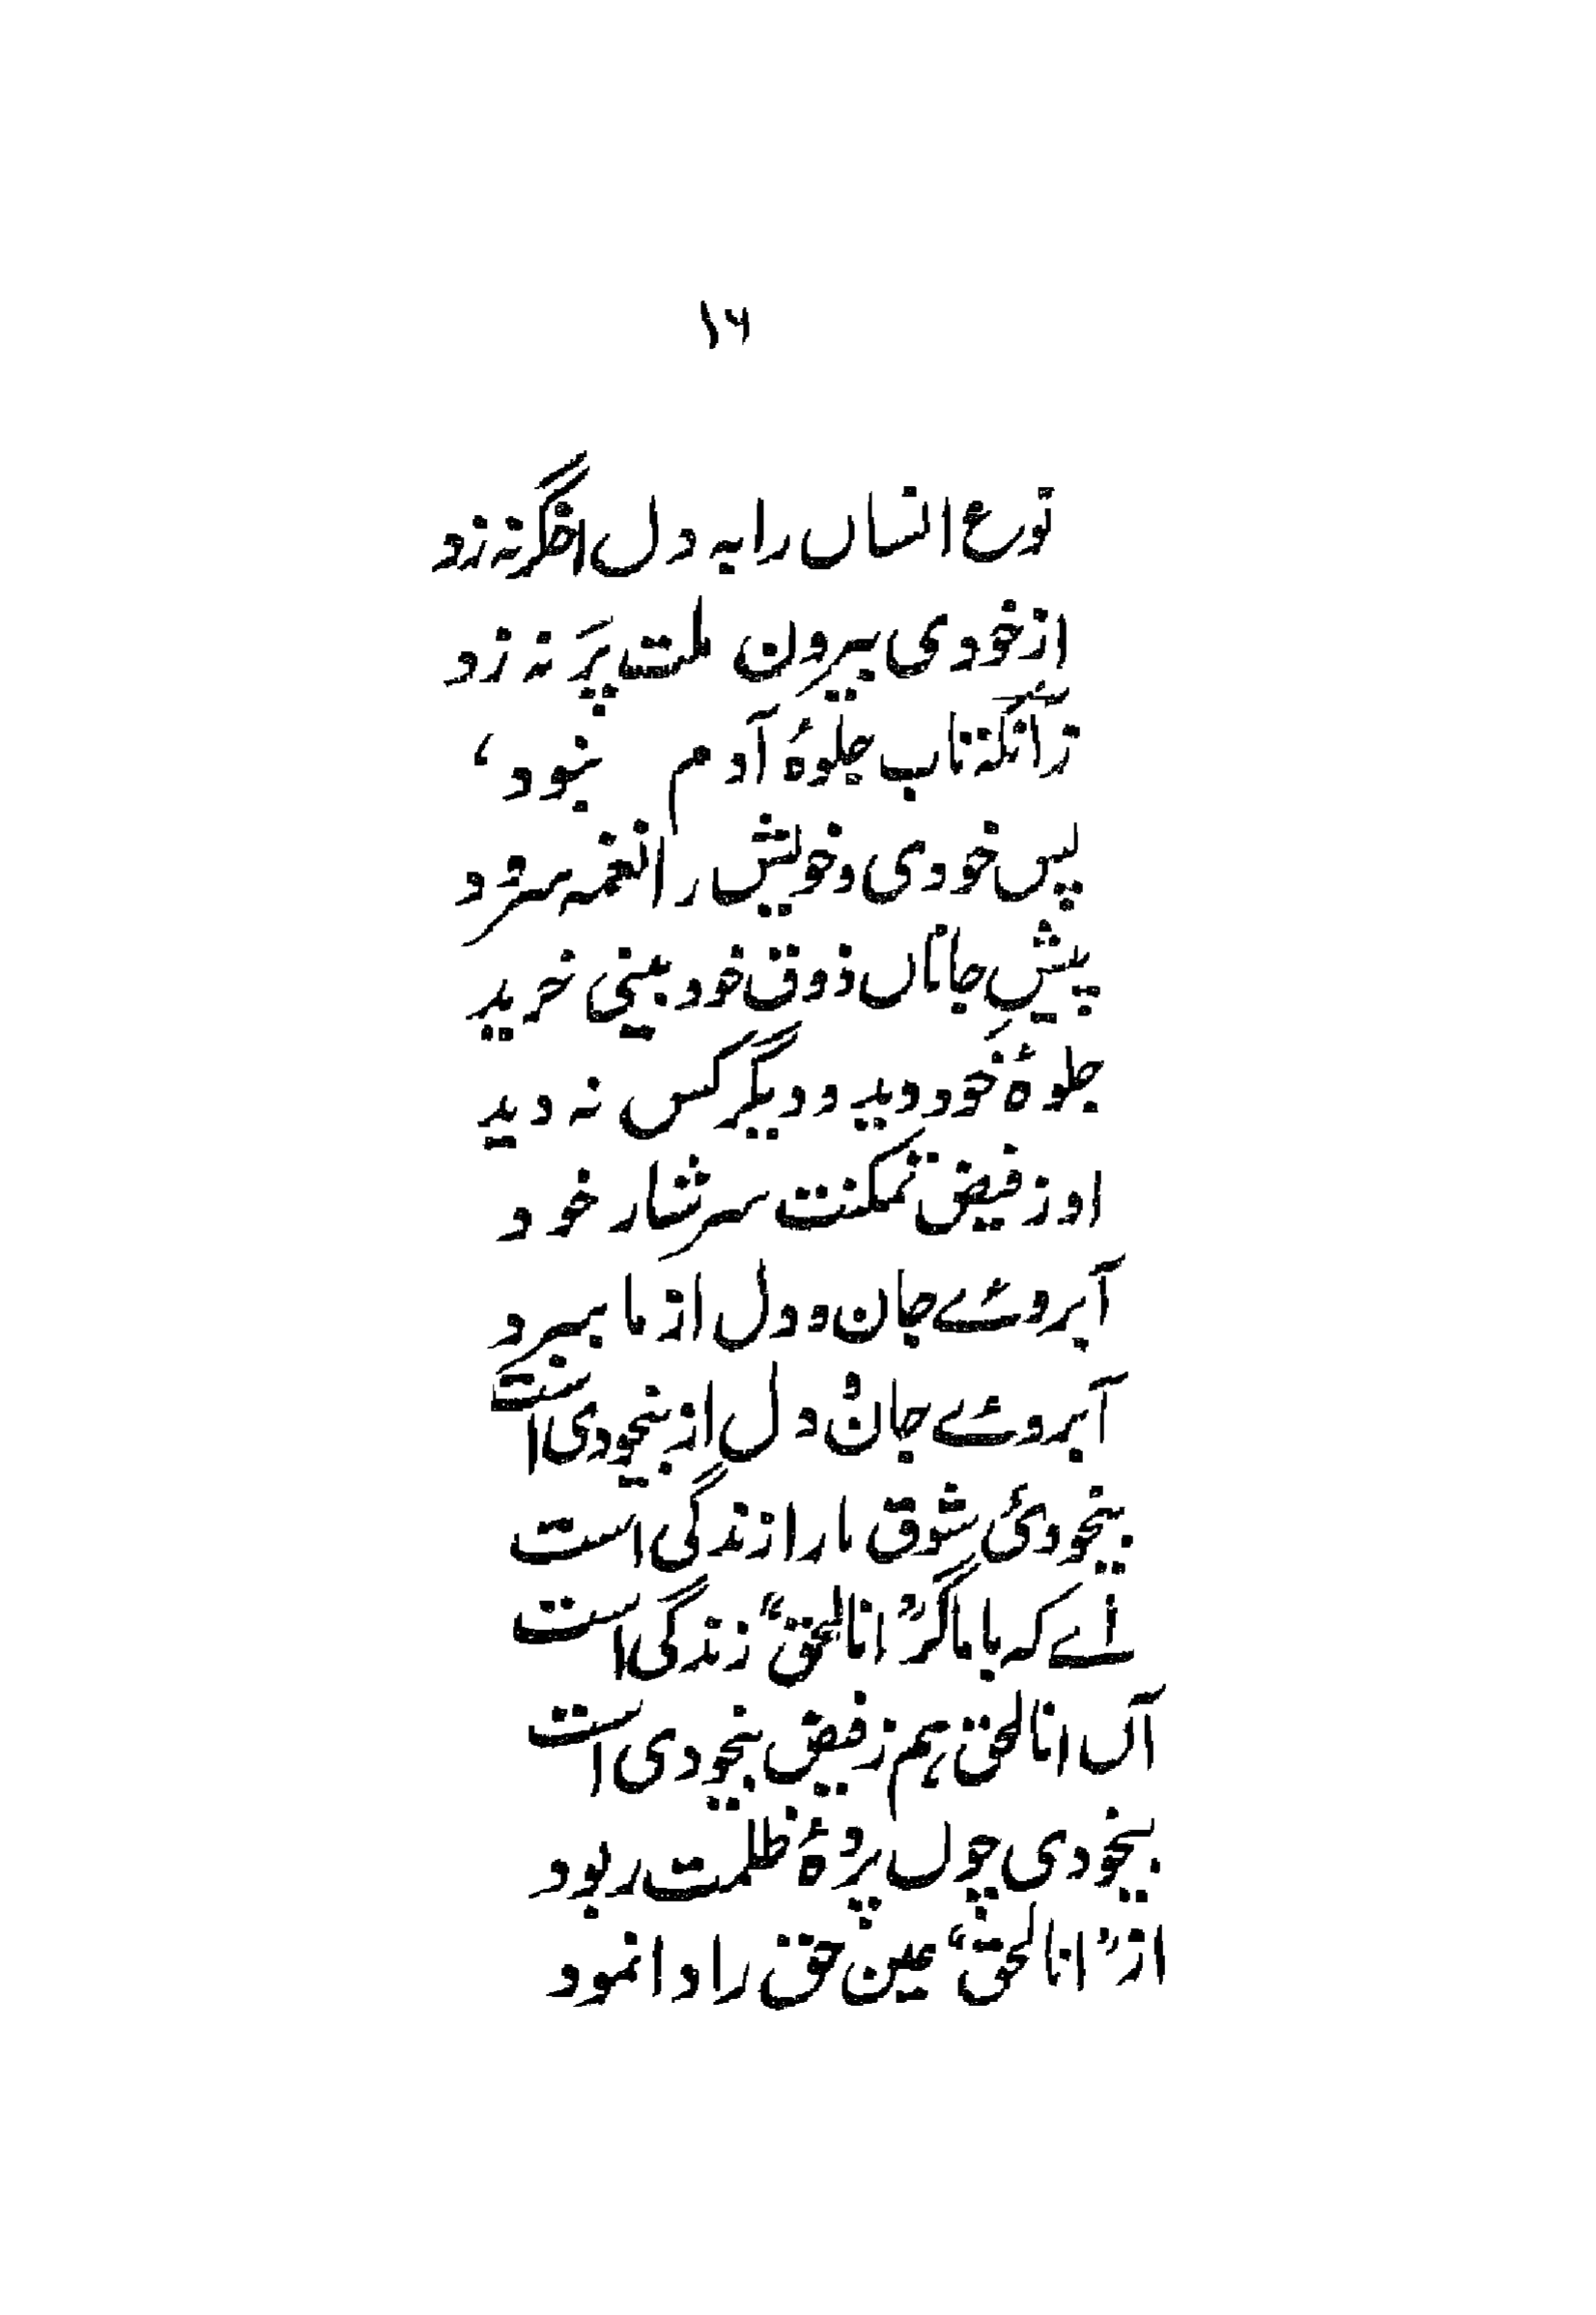 ۱۶
نوع انساں را بہ دل اخگر نہ زد
از خودی بیرون ملت پَر نہ زد
زآنکہ تاب جلوۂ آدم نبود،
پس خودی و خویش را نغمہ سرود
پیشِ جاناں ذوق خود بینی خرید
جلوۂ خود دید و دیگر کس نہ دید
او ز فیض تمکنت سرشار خود
آبروئے جان و دل از ما ببرد
آبروئے جان و دل از بیخودی است
بیخودیٔ شوق ما را زندگی است
اے کہ با ما گر "انا الحق" زندگی است
آں انا الحق ہم ز فیض بیخودی است
بیخودی چوں پردۂ ظلمت ربود
از "انا الحق" عین حق را وا نمود